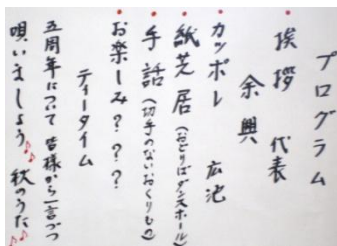 プログラム
挨拶 代表
余興
カッポレ 広池
紙芝居(おどりばダンスホール)
手話(切手のないおくりもの)
お楽しみ???
ティータイム
五周年について 皆様から一言づつ
唄いましょう♪♪ 秋のうた♪♪